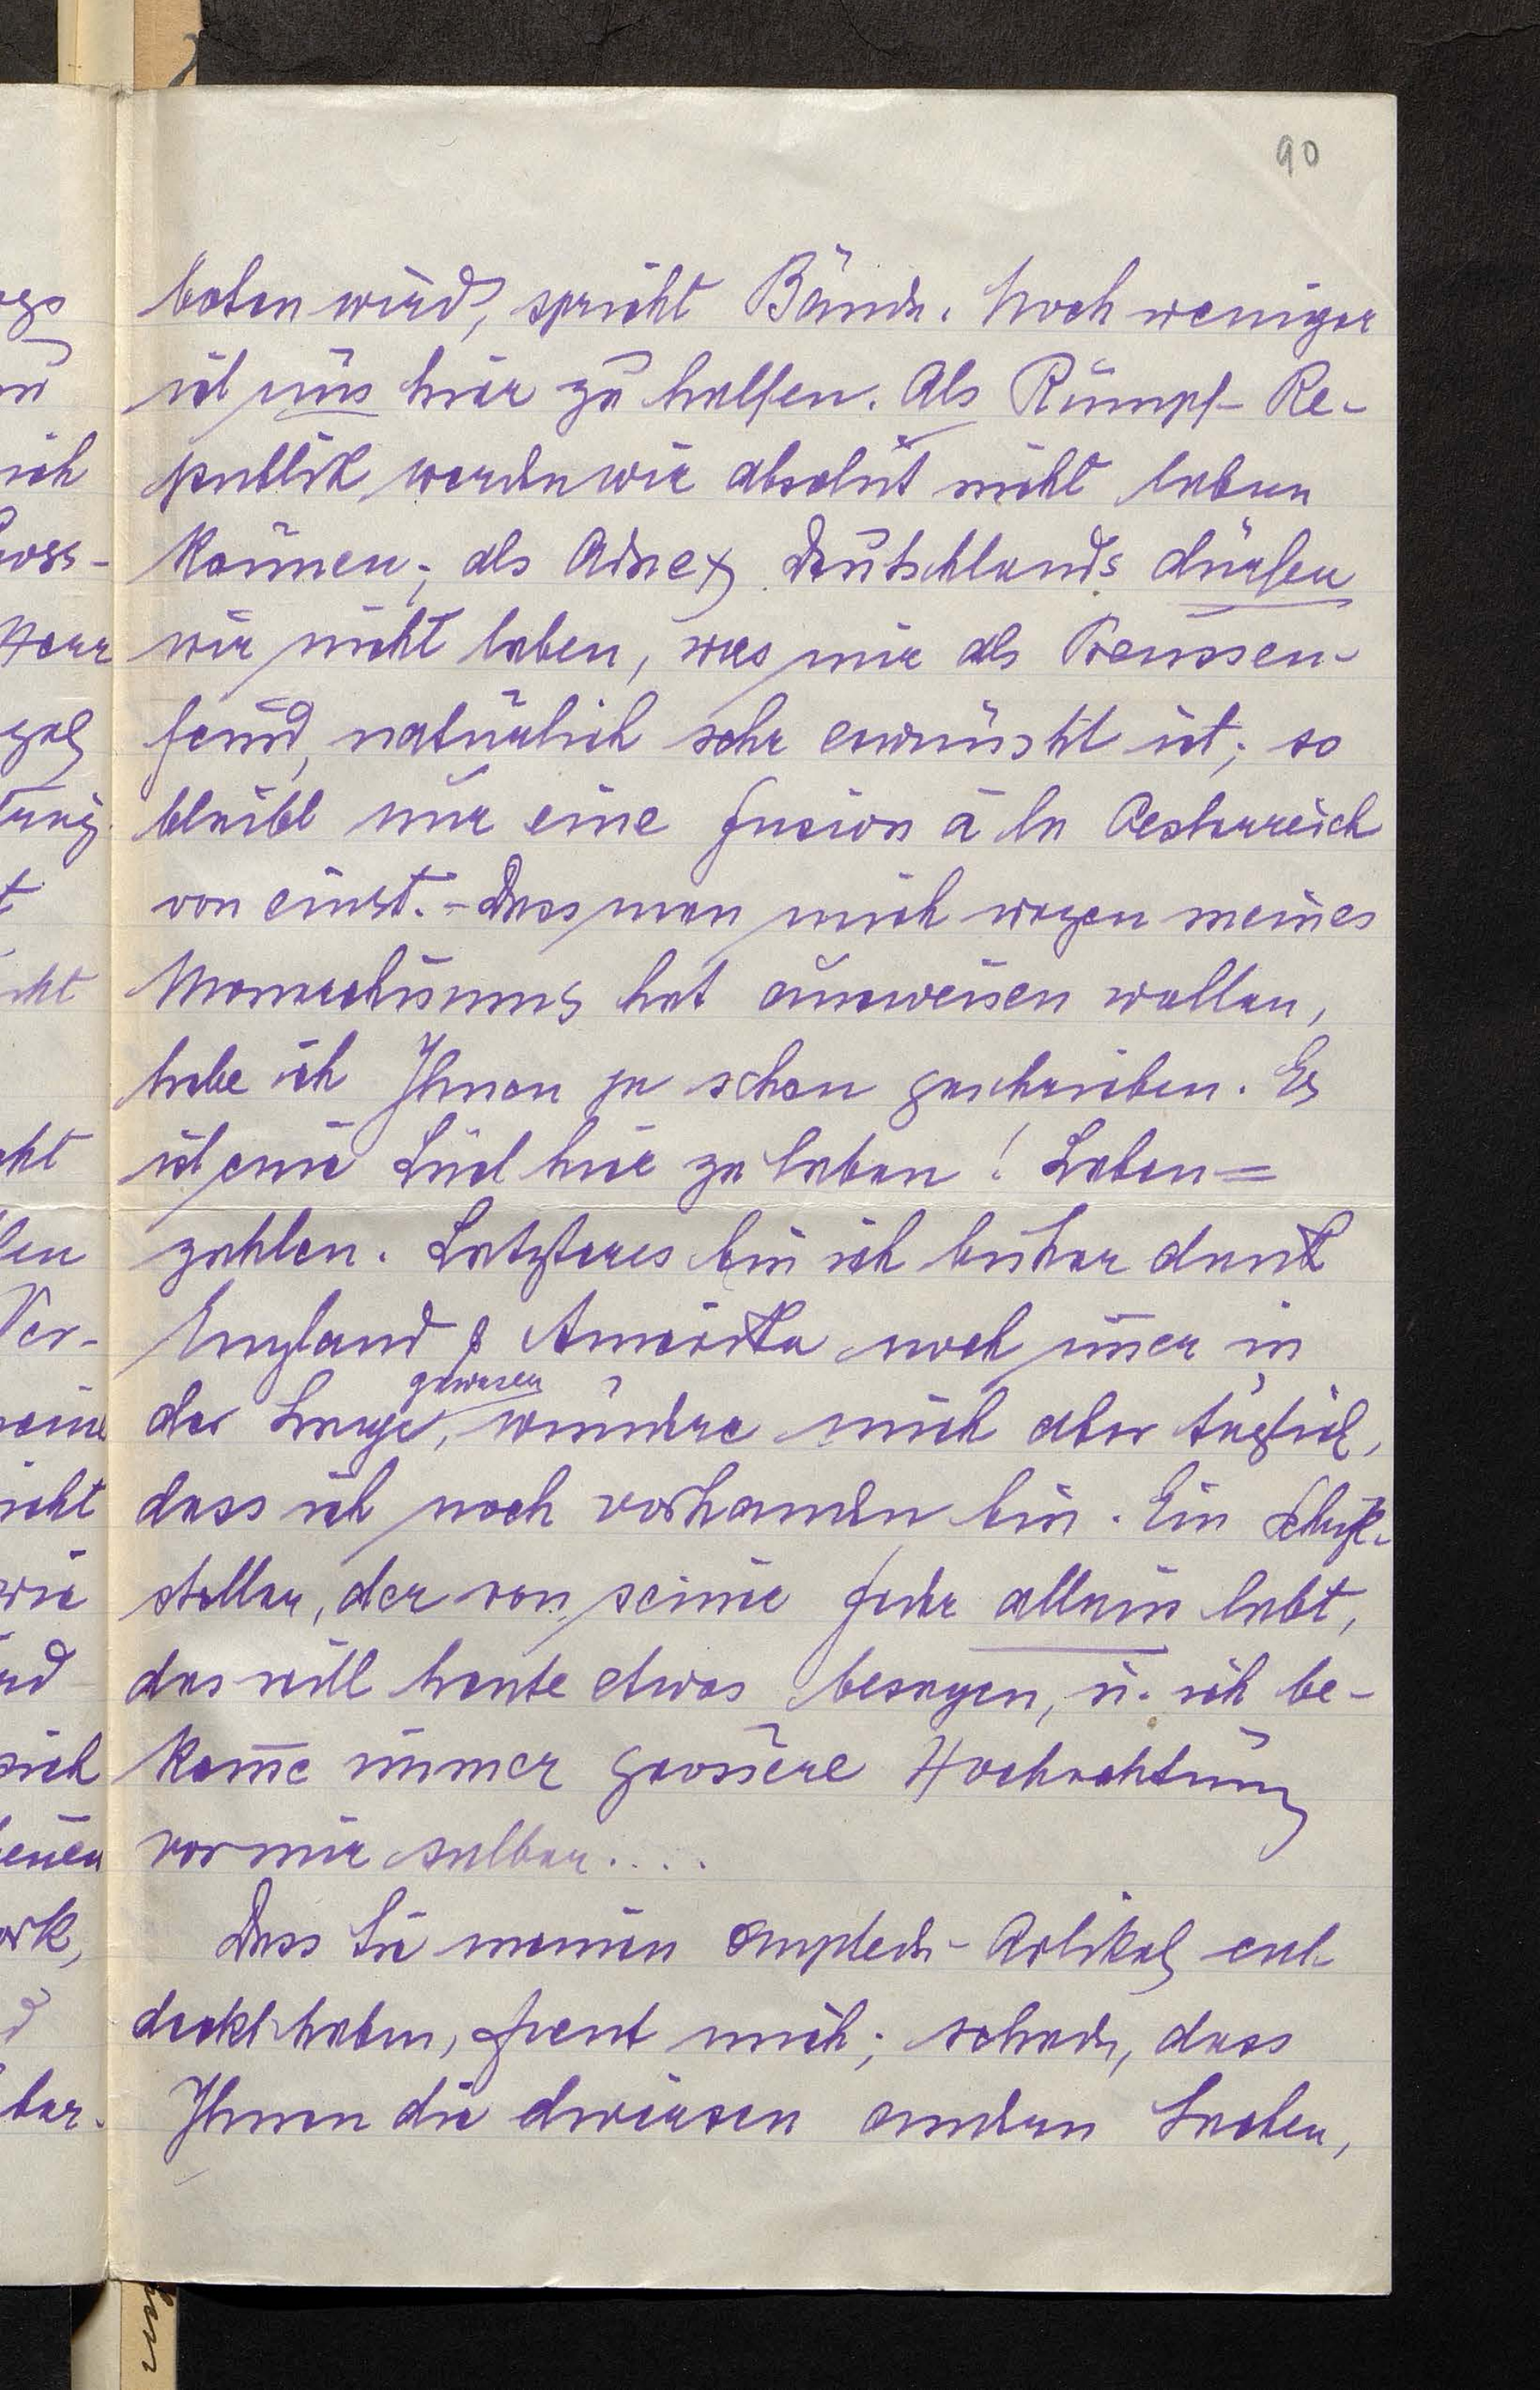 90
boten wird, spricht Bände. Noch weniger
ist uns hier zu helfen. Als Rumpf-Re-
publik werden wir absolut nicht leben
können; als Adnex Deutschlands dürfen
wir nicht leben, was mir als Preussen-
feind, natürlich sehr erwünscht ist; so
bleibt nur eine Fusion à la Oesterreich
von einst. - Dass man mich wegen meines
Monarchismus hat ausweisen wollen,
habe ich Ihnen ja schon geschrieben. Es
ist eine Lust hier zu leben! Leben =
zahlen. Letzteres bin ich bisher dank
England & Amerika noch im̅er in
der Lage gewesen, wundre mich aber täglich,
dass ich noch vorhanden bin. Ein Schrift-
steller, der von seiner Feder allein lebt,
das will heute etwas besagen, u. ich be-
kom̅e immer grössere Hochachtung
vor mir selber....
Dass Sie meinen Artikel ent-
deckt haben, freut mich; schade, dass
Ihnen die diversen andern Sachen,